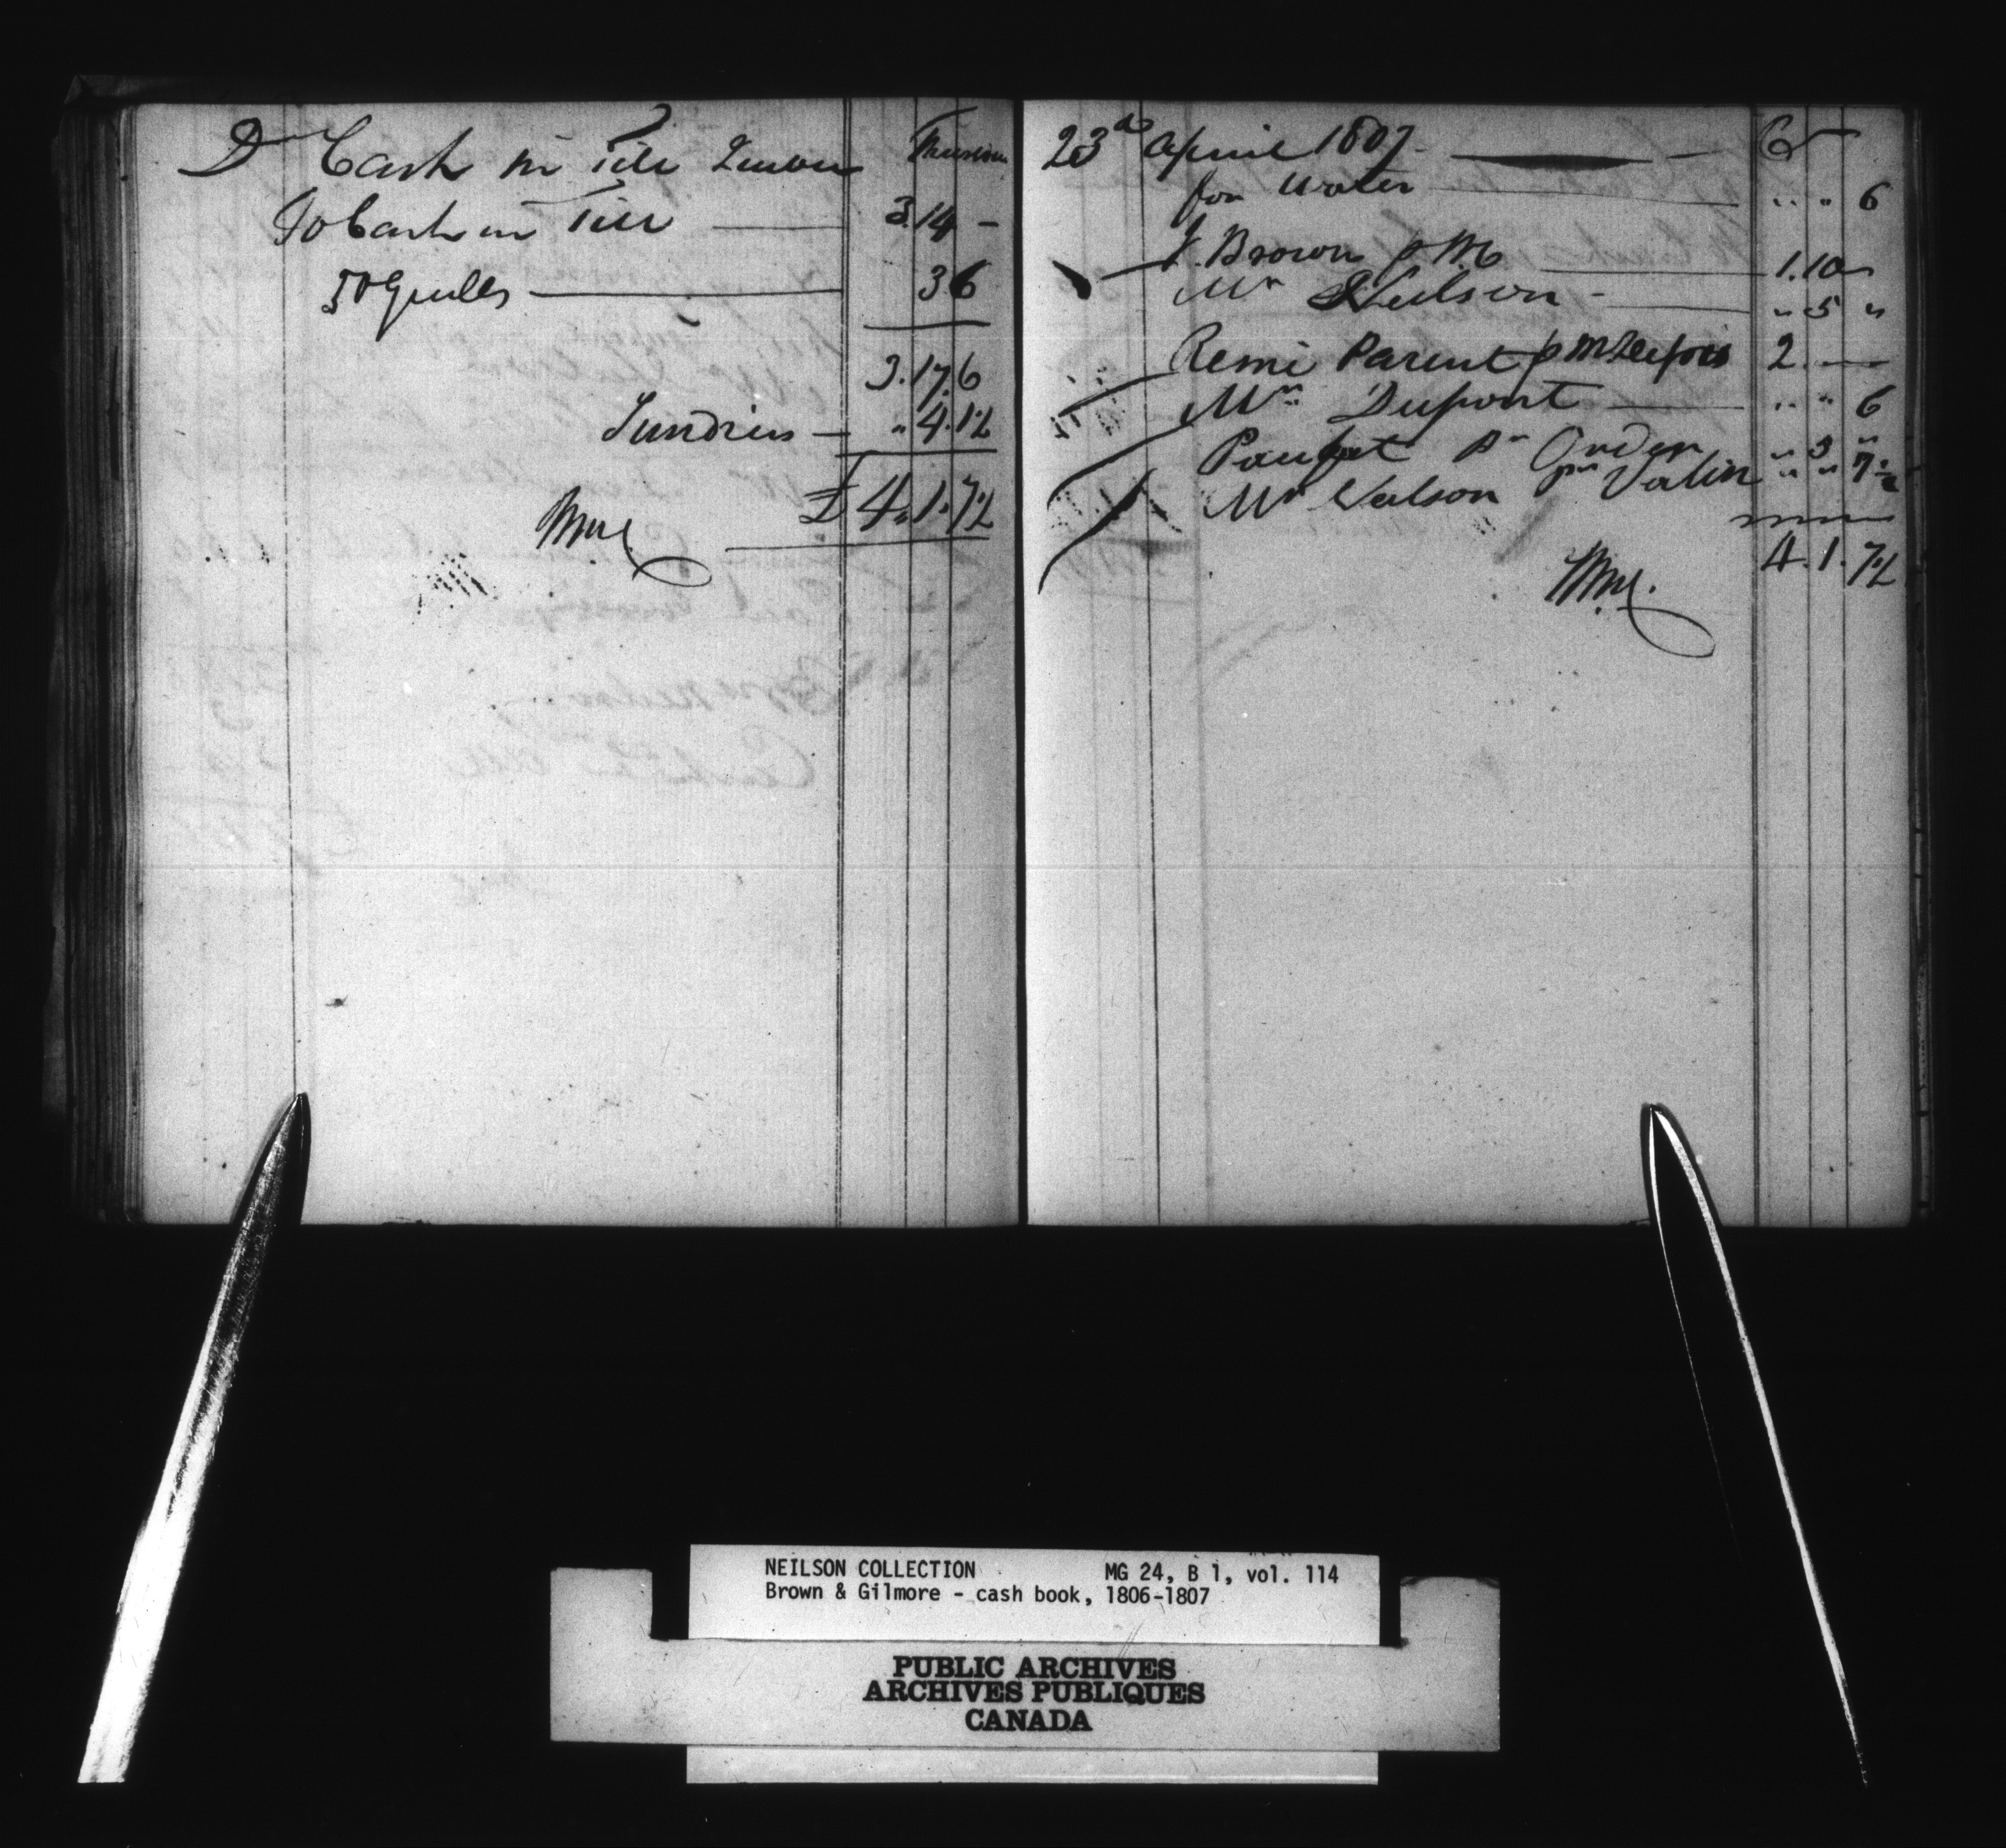 Dr Cash in Till Quebec Thursday
To Cash in Till 3.14 -
50 Quills 3 6
3.17.6
Sundries " 4.1½
£4.1.7½
23d April 1807 Cr
for Water " " 6
J. Brown p M 1.10 "
Mr Neilson " 5 "
Remi Parent p M 2
Mr Dupont " " 6
pr Order " 5 "
Mr pr Valin " " 7½
4.1.7½
NEILSON COLLECTION MG 24, B 1, vol. 114
Brown & Gilmore - cash book, 1806-1807
PUBLIC ARCHIVES
ARCHIVES PUBLIQUES
CANADA